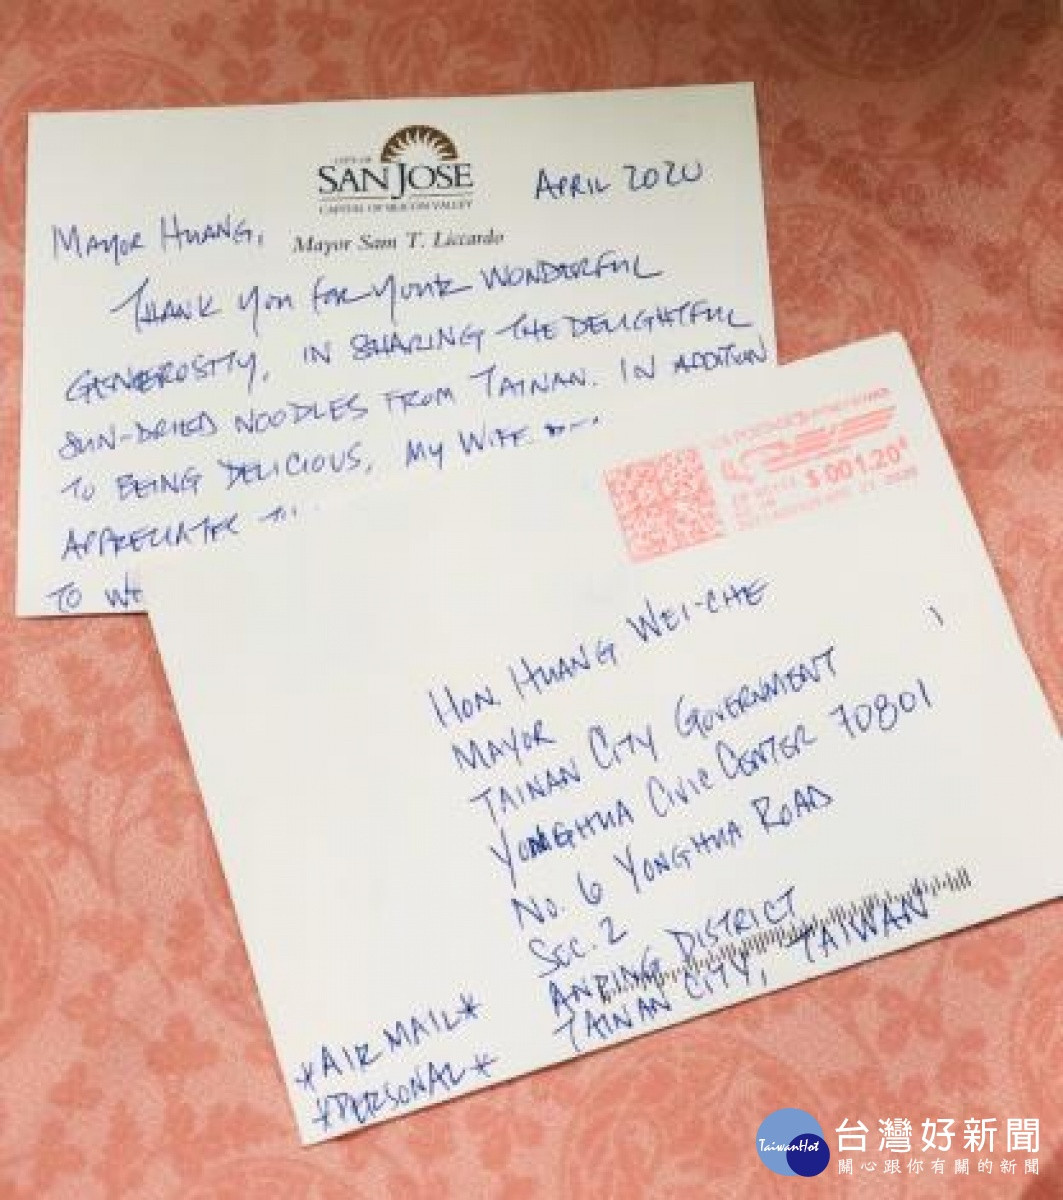 CITY OF
SAN JOSE
CAPITAL OF SILICON VALLEY
APRIL 2020
MAYOR HUANG,
Mayor Sam T. Liccardo
THANK YOU FOR YOUR WONDERFUL
GENEROSTTY, IN SHARING THE DELIGHTFUL
SUN-DRIED NOODLES FROM TAINAN. IN ADDITION
TO BEING DELICIOUS, MY WIFE
APPRECIATES
TO WE
$001.20
HON. HUANG WEI-CHE
MAYOR
TAINAN CITY GOVERNMENT
YONGHUA CIVIC CENTER 70801
NO. 6 YONGHUA ROAD
SEC. 2
ANPING DISTRICT
TAINAN CITY, TAIWAN
*AIR MAIL*
*PERSONAL*
TaiwanHot
台灣好新聞
關心跟你有關的新聞